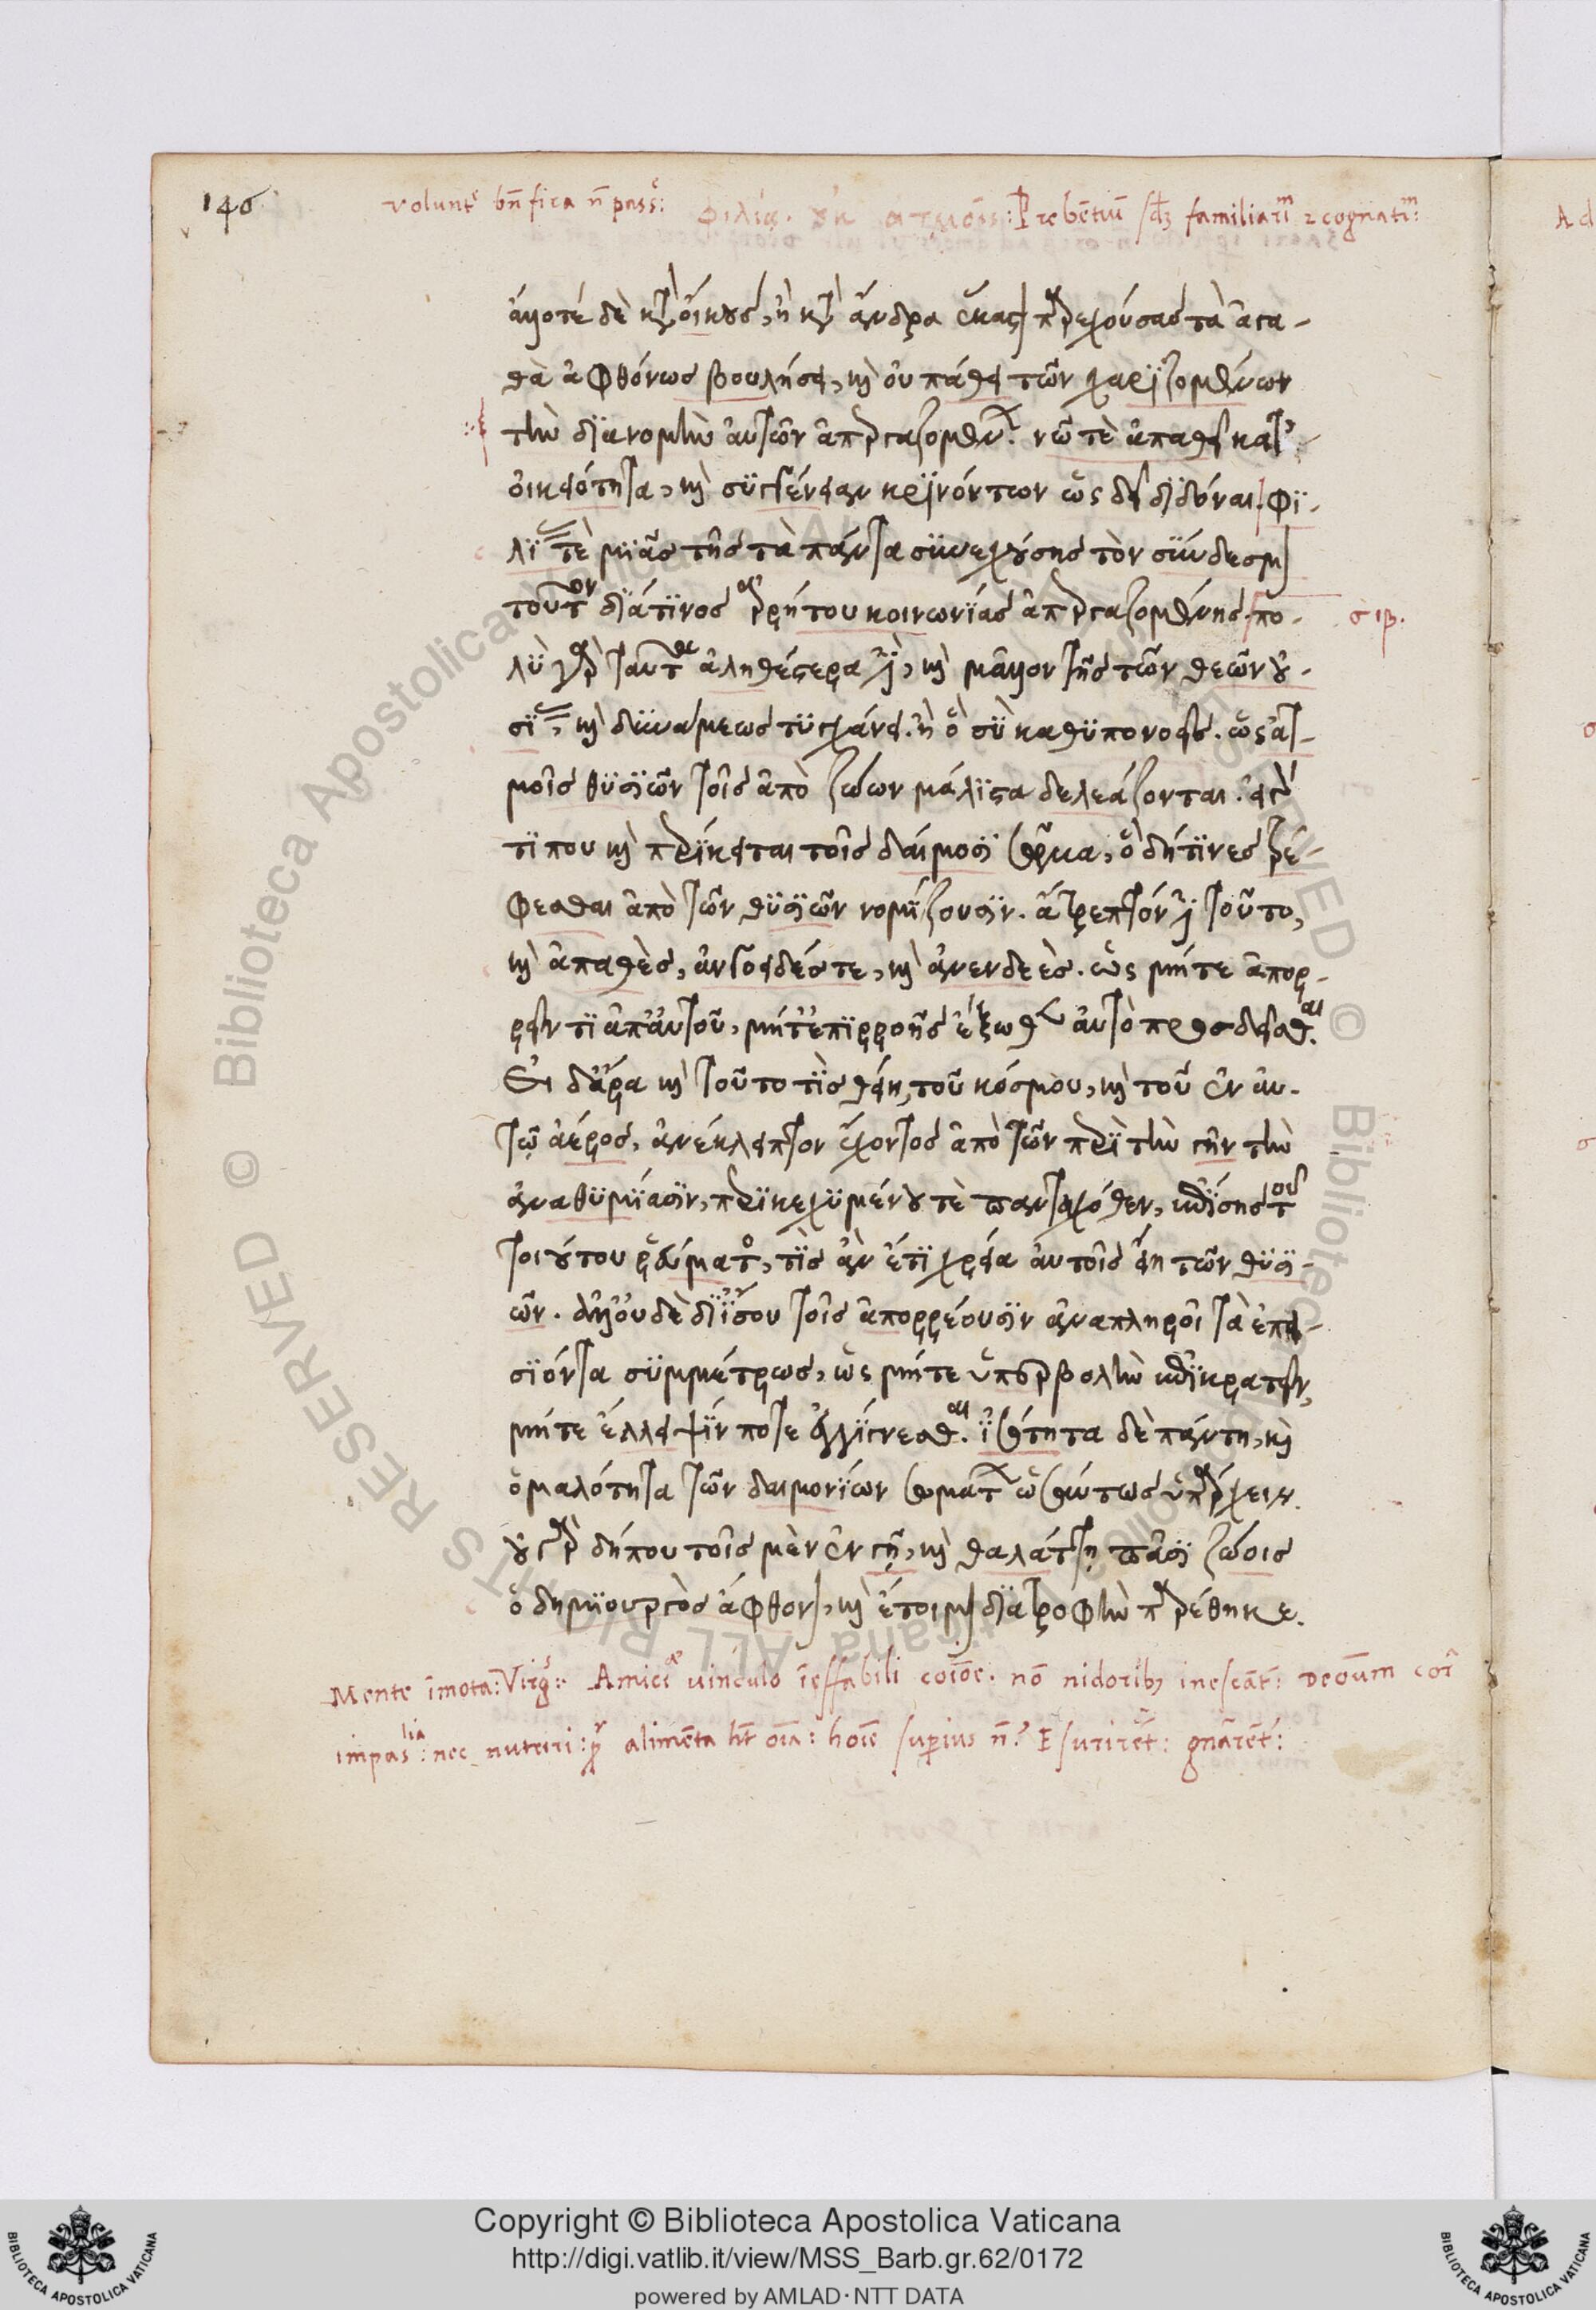 140
volunte bn̄fica n̄ pass: φιλίας. Prebētiū sꝫ familiarīm ⁊ cognatīm:
ἄλλοτε δὲ κατ' οἴκους, ἢ κατ' ἄνδρα ἕκαστον παρεχούσας τὰ ἀγα-
θὰ ἀφθόνως βουλήσει, καὶ οὐ πάθει τῶν χαριζομένων
τὴν διανομὴν αὐτῶν ἀπεργαζομένων. νῷ τὲ ἀπαθεῖ κατ'
οἰκειότητα, καὶ συγγένειαν κρινόντων ὡς δεῖ διδόναι. φι-
λίας τὲ μιᾶς τῆς τὰ πάντα συνεχούσης τὸν σύνδεσμον
τοῦτον διά τινος ἀρρήτου κοινωνίας ἀπεργαζομένης. πο-
σιβ.
λὺ γὰρ ταῦτα ἀληθέστερά ἐστι, καὶ μᾶλλον τῆς τῶν θεῶν οὐ-
σίας, καὶ δυνάμεως τυγχάνει. ἢ ὃ σὺ καθυπονοεῖς. ὡς ἀτ-
μοῖς θυσιῶν τοῖς ἀπὸ ζώων μάλιστα δελεάζονται. εἰ γάρ
τί που καὶ περίκειται τοῖς δαίμοσι σῶμα, ὃ δή τινες τρέ-
φεσθαι ἀπὸ τῶν θυσιῶν νομίζουσιν. ἄτρεπτόν ἐστι τοῦτο,
καὶ ἀπαθὲς, αὐγοειδές τε, καὶ ἀνενδεὲς. ὡς μήτε ἀπορ-
ρεῖν τι ἀπ' αὐτοῦ, μήτ' ἐπιρροῆς ἔξωθεν αὐτὸ προσδεῖσθαι.
Εἰ δ' ἄρα καὶ τοῦτο τὶς θείη, τοῦ κόσμου, καὶ τοῦ ἐν αὐ-
τῷ ἀέρος, ἀνέκλειπτον ἔχοντος ἀπὸ τῶν περὶ τὴν γῆν τὴν
ἀναθυμίασιν, περικεχυμένου τὲ πανταχόθεν, ἐπίσης τοῦ
τοιούτου ῥεύματος, τὶς ἂν ἔτι χρεία αὐτοῖς εἴη τῶν θυσι-
ῶν. ἀλλ' οὐδὲ δι' ἴσου τοῖς ἀπορρέουσιν ἀναπληροῖ τὰ ἐπει-
σιόντα συμμέτρως, ὡς μήτε ὑπερβολὴν ἐπικρατεῖν,
μήτε ἔλλειψίν ποτε ἐγγίγνεσθαι. ἰσότητα δὲ πάντη, καὶ
ὁμαλότητα τῶν δαιμονίων σωμάτων ὡσαύτως ὑπάρχειν.
οὐ γὰρ δήπου τοῖς μὲν ἐν γῇ, καὶ θαλάττῃ πᾶσι ζώοις
ὁ δημιουργὸς ἄφθονον, καὶ ἕτοιμον διατροφὴν παρέθηκε.
Mente īmota: Virg: Amicīa uinculo īeffabili coīoē. nō nidoribꝫ inescāt: Deōum cor
impaslia: nec nutriri: qr alimēta hn̄t oīa: hoīe supius n̄? Esurirēt: gn̄arēt:
Copyright © Biblioteca Apostolica Vaticana
http://digi.vatlib.it/view/MSS_Barb.gr.62/0172
powered by AMLAD·NTT DATA